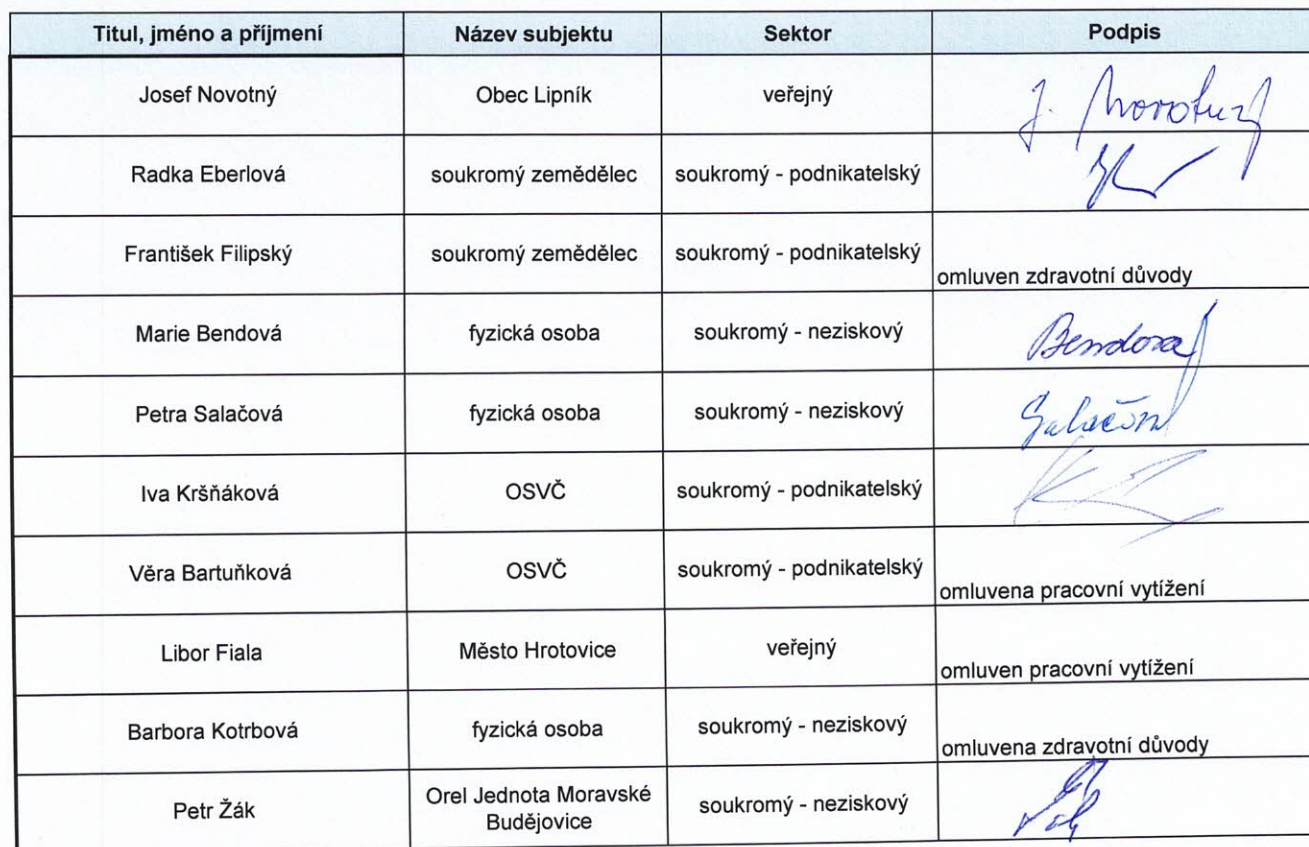 Titul, jméno a příjmení Název subjektu Sektor Podpis
Josef Novotný Obec Lipník veřejný J. Novotný
Radka Eberlová soukromý zemědělec soukromý - podnikatelský
František Filipský soukromý zemědělec soukromý - podnikatelský omluven zdravotní důvody
Marie Bendová fyzická osoba soukromý - neziskový Bendova
Petra Salačová fyzická osoba soukromý - neziskový Salačová
Iva Kršňáková OSVČ soukromý - podnikatelský
Věra Bartuňková OSVČ soukromý - podnikatelský omluvena pracovní vytížení
Libor Fiala Město Hrotovice veřejný omluven pracovní vytížení
Barbora Kotrbová fyzická osoba soukromý - neziskový omluvena zdravotní důvody
Petr Žák Orel Jednota Moravské Budějovice soukromý - neziskový